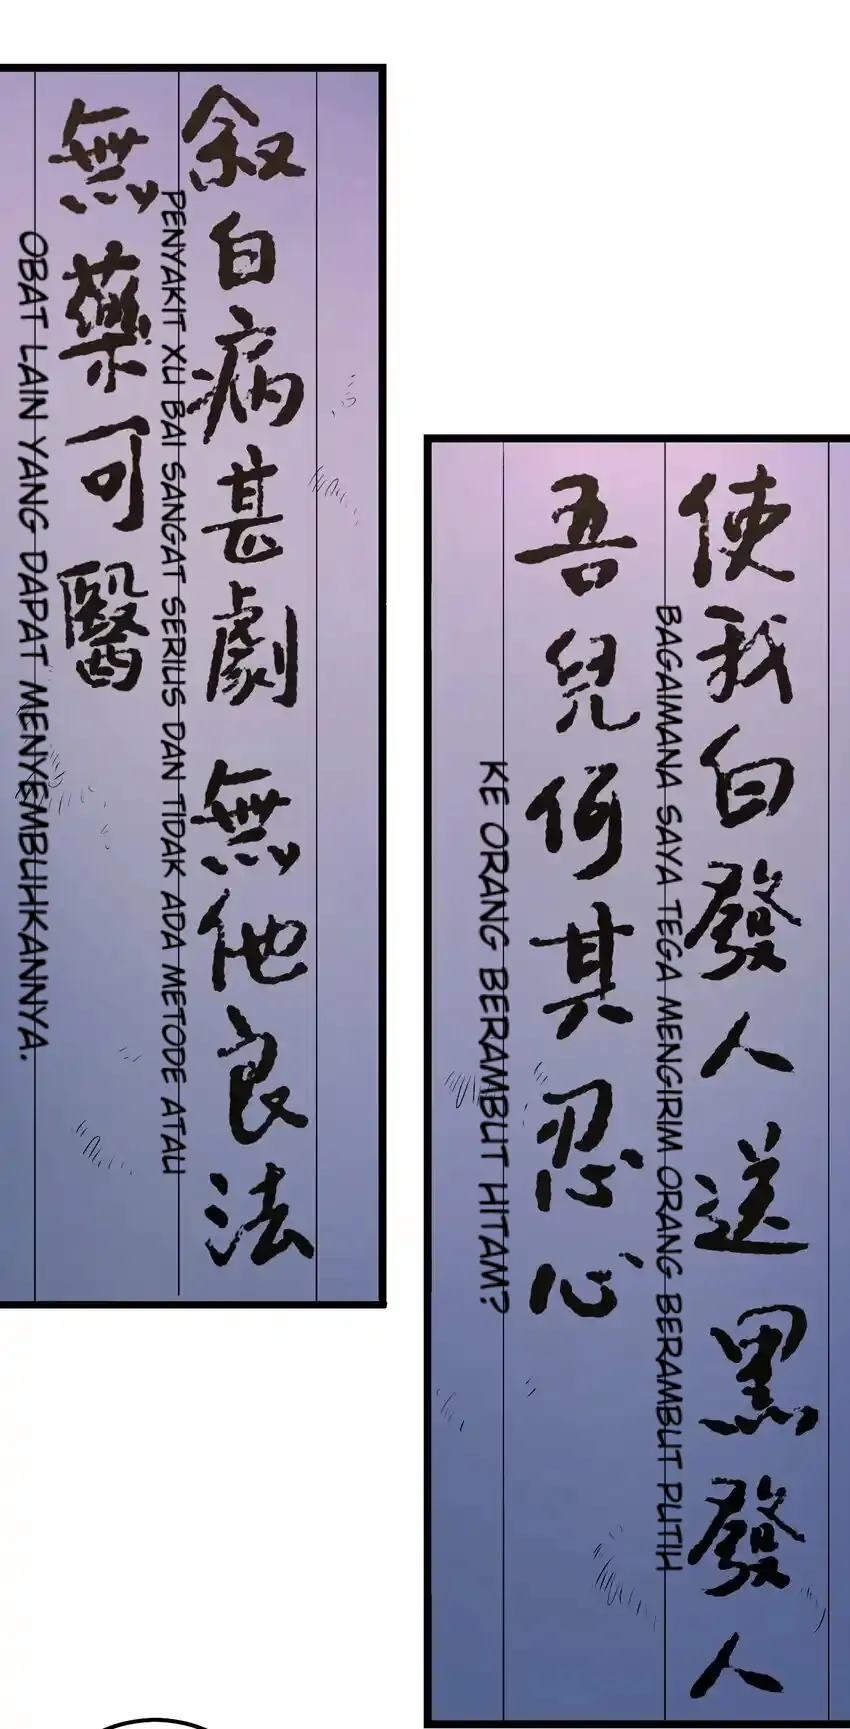 敘白病甚劇 無他良法
無藥可醫
PENYAKIT XU BAI SANGAT SERIUS DAN TIDAK ADA METODE ATAU
OBAT LAIN YANG DAPAT MENYEMBUHKANNYA.
使我白發人送黑發人
吾兒何其忍心
BAGAIMANA SAYA TEGA MENGIRIM ORANG BERAMBUT PUTIH
KE ORANG BERAMBUT HITAM?